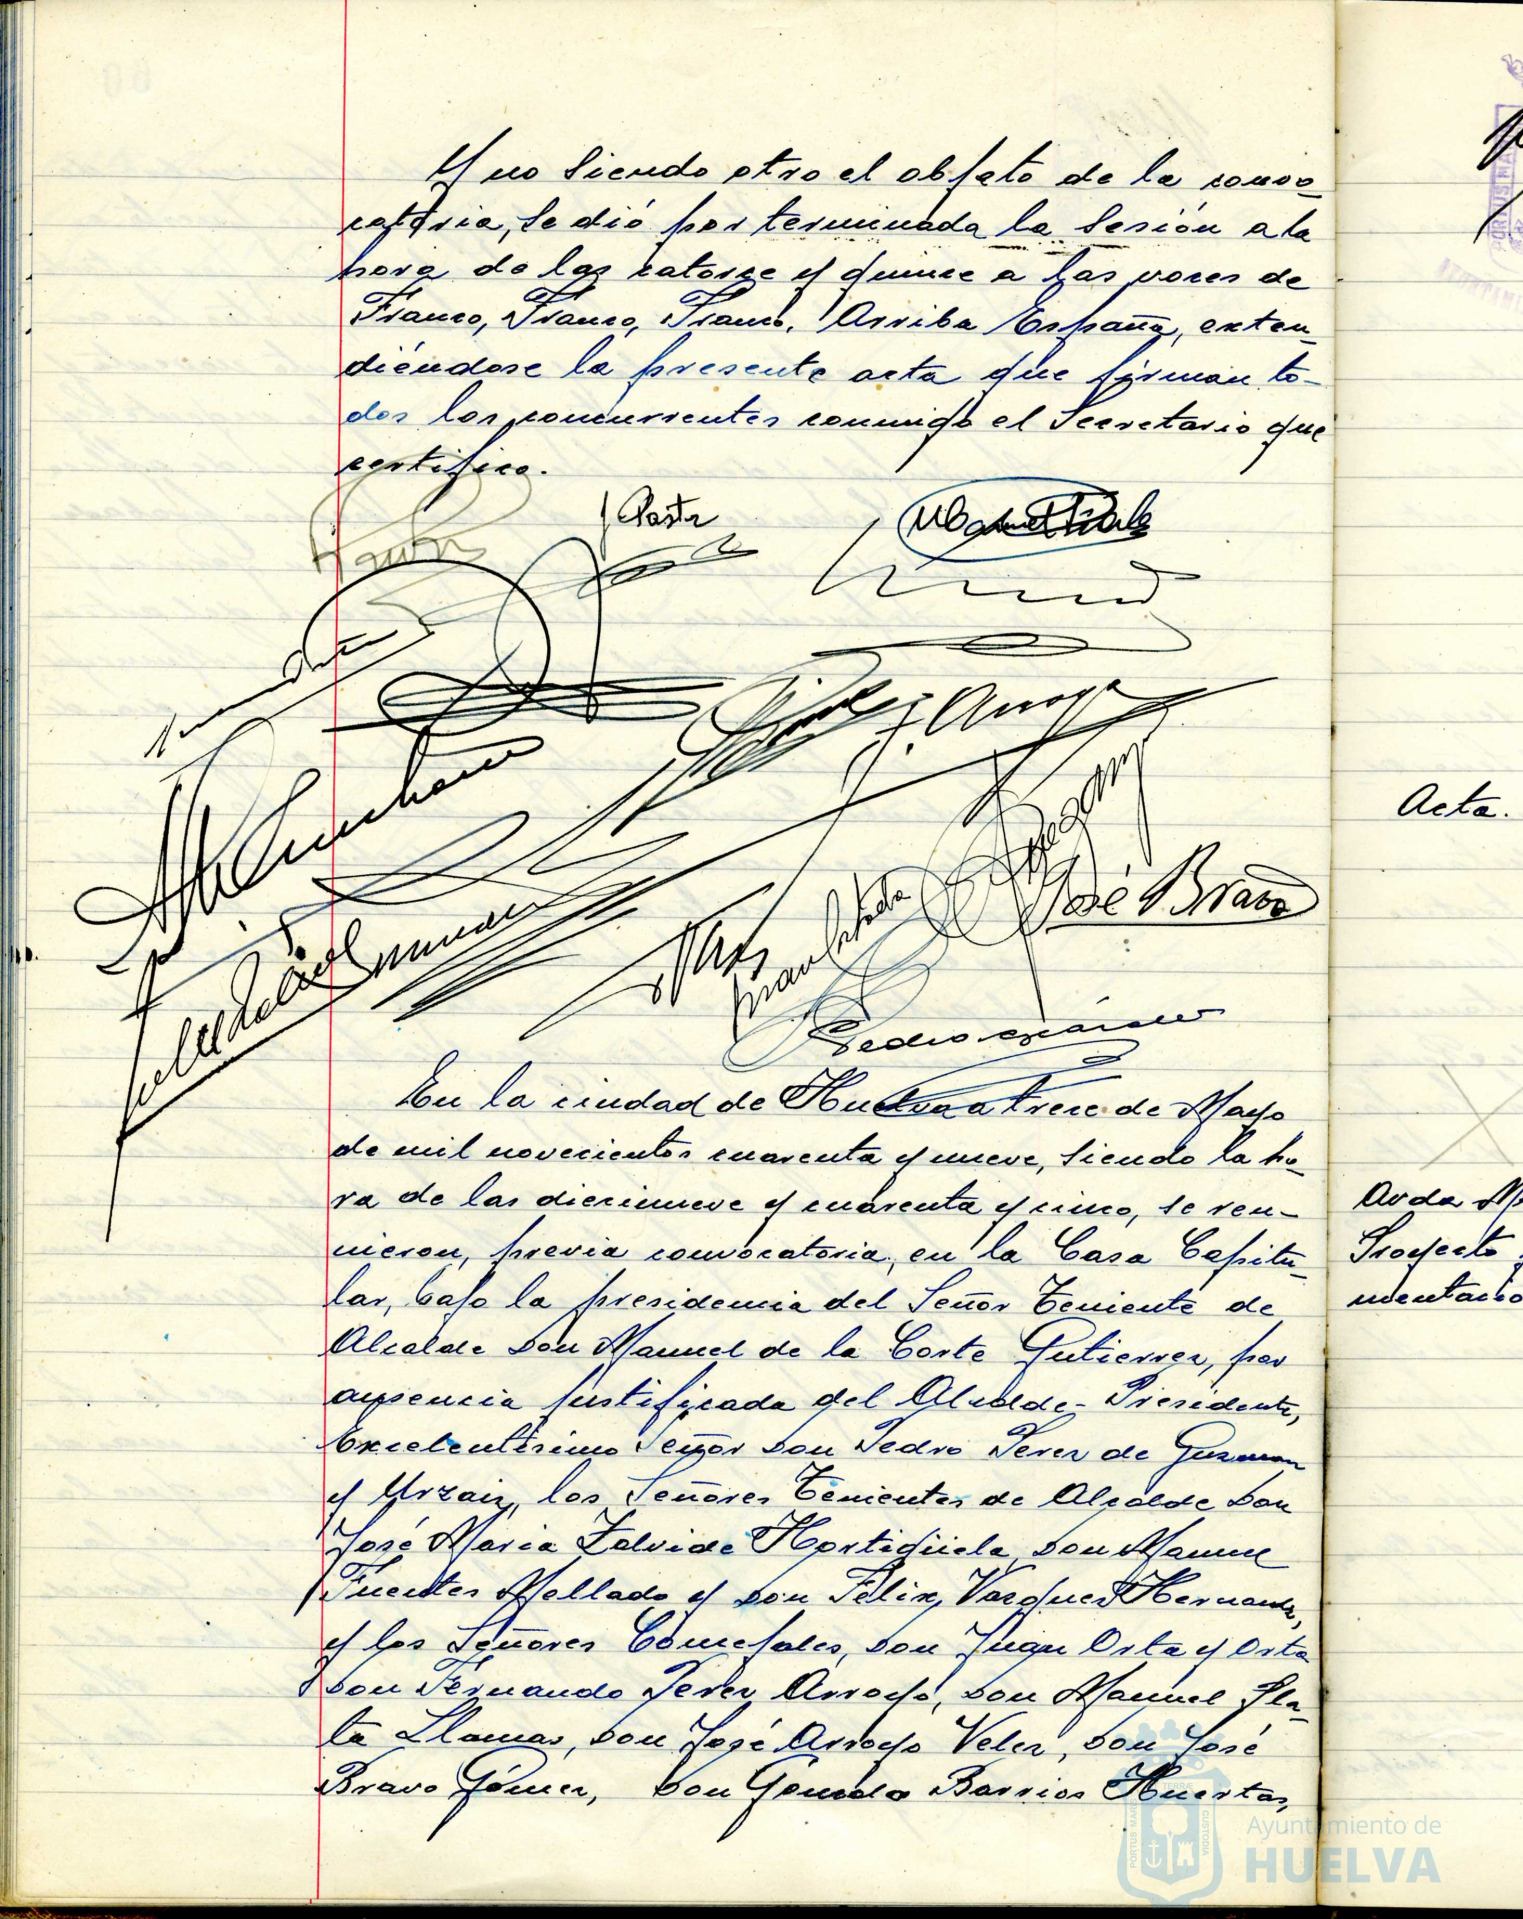 Y no siendo otro el objeto de la convo-
catoria, se dió por terminada la sesión a la
hora de las catorce y quince a las voces de
Franco, Franco, Franco. ¡Arriba España, exten-
diéndose la presente acta que firman to-
dos los concurrentes conmigo el Secretario que
certifico.
J. Plata
J. Arroyo
José Bravo
Pedro
En la ciudad de Huelva a trece de Mayo
de mil novecientos cuarenta y nueve, siendo la ho-
ra de las diecinueve y cuarenta y cinco, se reu-
nieron, previa convocatoria, en la Casa Capitu-
lar, bajo la presidencia del Señor Teniente de
Alcalde Don Manuel de la Corte Gutierrez, por
ausencia justificada del Alcalde-Presidente,
Excelentísimo Señor Don Pedro Perez de Guzman
y Urzaiz, los Señores Tenientes de Alcalde Don
José Maria Zalvide Hortigüela, Don Manuel
Fuentes Mellado y Don Félix Vazquez Hernandez,
y los Señores Concejales, Don Juan Orta y Orta
Don Fernando Perez Arroyo, Don Manuel Pla-
ta Llamas, Don José Arroyo Velez, Don José
Bravo Gómez, Don Gonzalo Barrios Huertas,
Acta.
Avda
Proyecto
mentacio
Ayuntamiento de
HUELVA